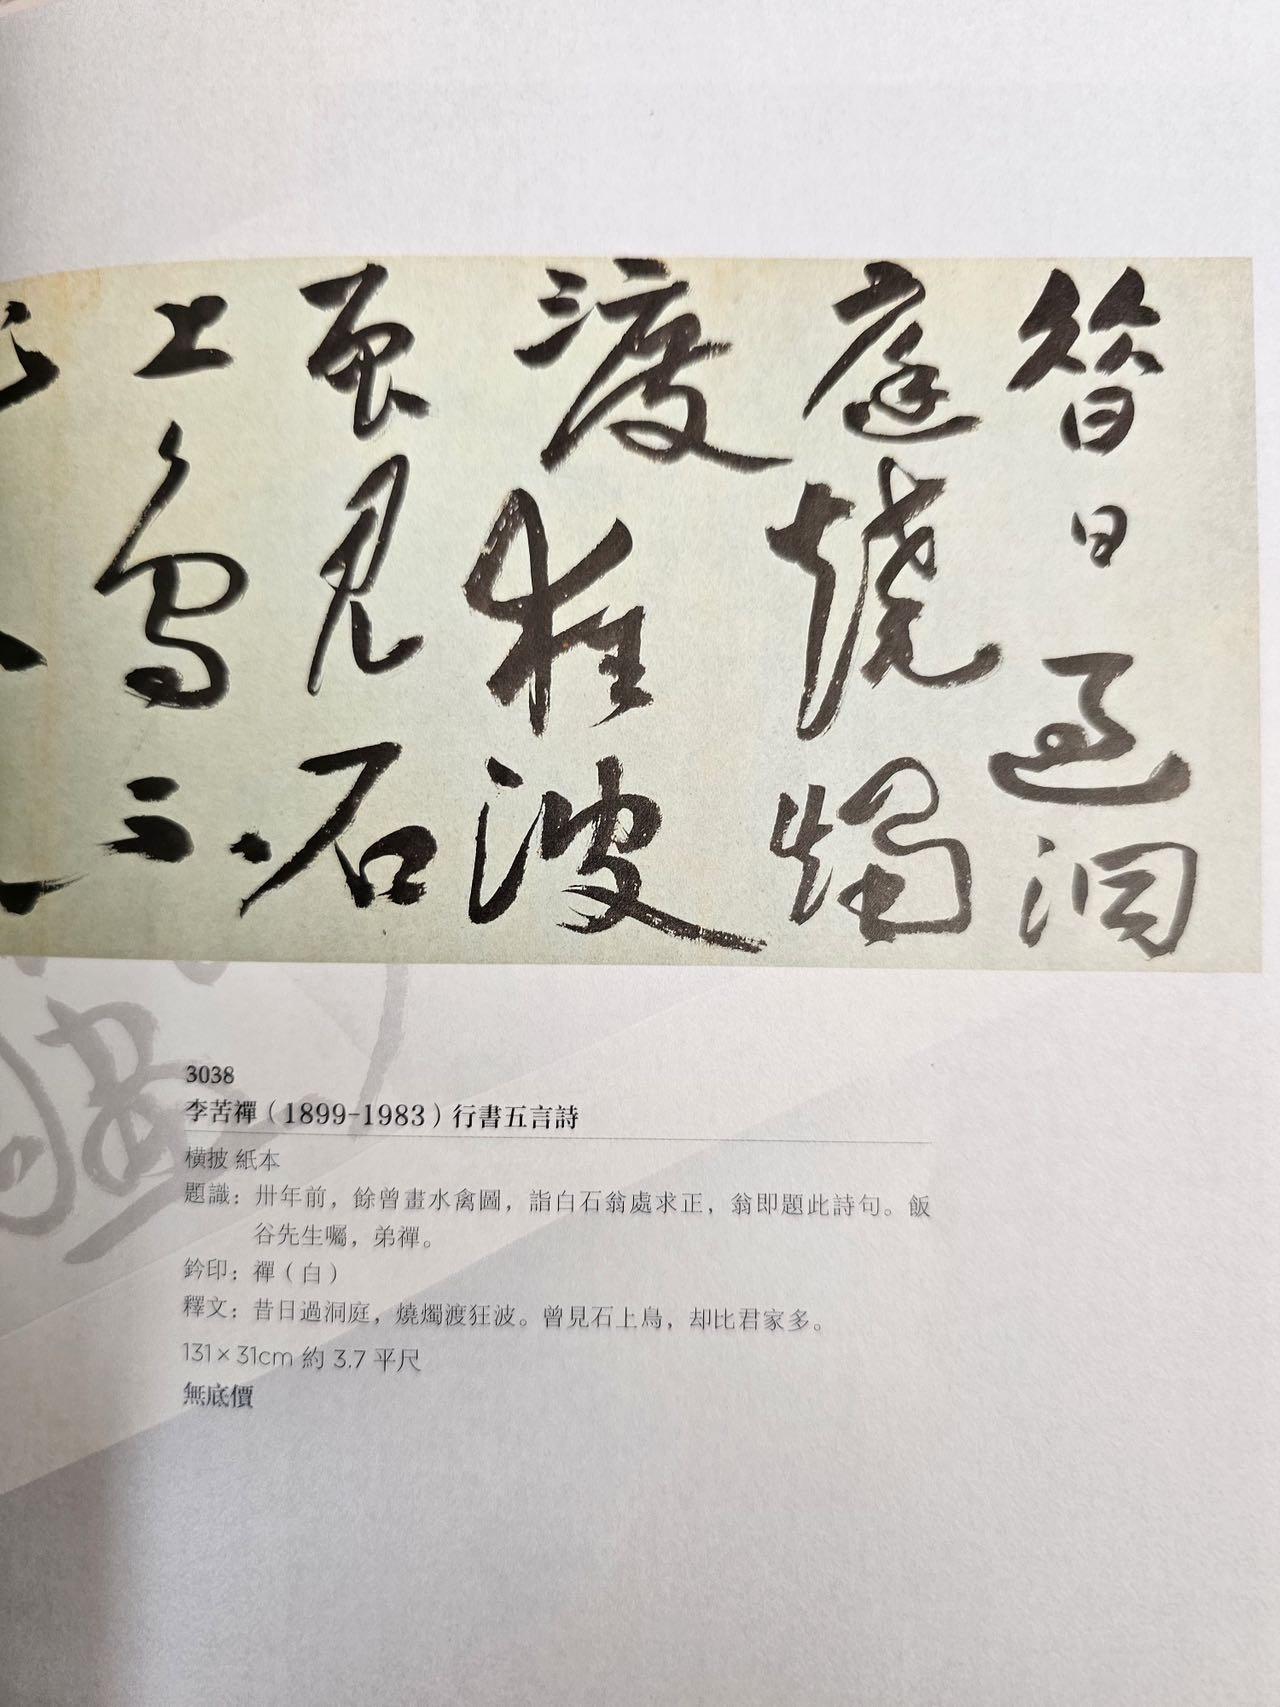 昔日過洞
庭燒燭
渡狂波
見石
上鳥
3038
李苦禪（1899-1983）行書五言詩
橫披 紙本
題識：卅年前，餘曾畫水禽圖，詣白石翁處求正，翁即題此詩句。飯
谷先生囑，弟禪。
鈐印：禪（白）
釋文：昔日過洞庭，燒燭渡狂波。曾見石上鳥，却比君家多。
131×31cm 約 3.7 平尺
無底價